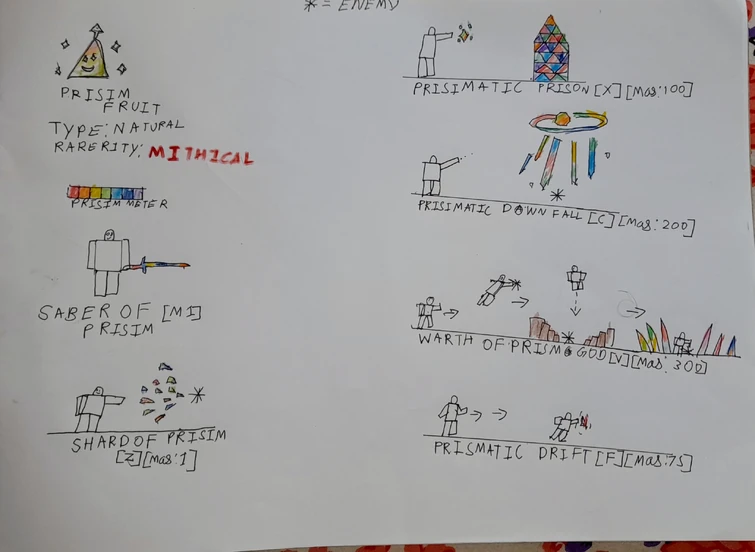 * = ENEMY
PRISIM
FRUIT
TYPE: NATURAL
RARERITY: MITHICAL
PRISIM METER
SABER OF [M1]
PRISIM
SHARD OF PRISIM
[Z][Mas:1]
PRISIMATIC PRISON [X][Mas:100]
PRISIMATIC DOWN FALL [C][Mas:200]
WARTH OF PRISM GOD [V][Mas:300]
PRISMATIC DRIFT [F][Mas:75]